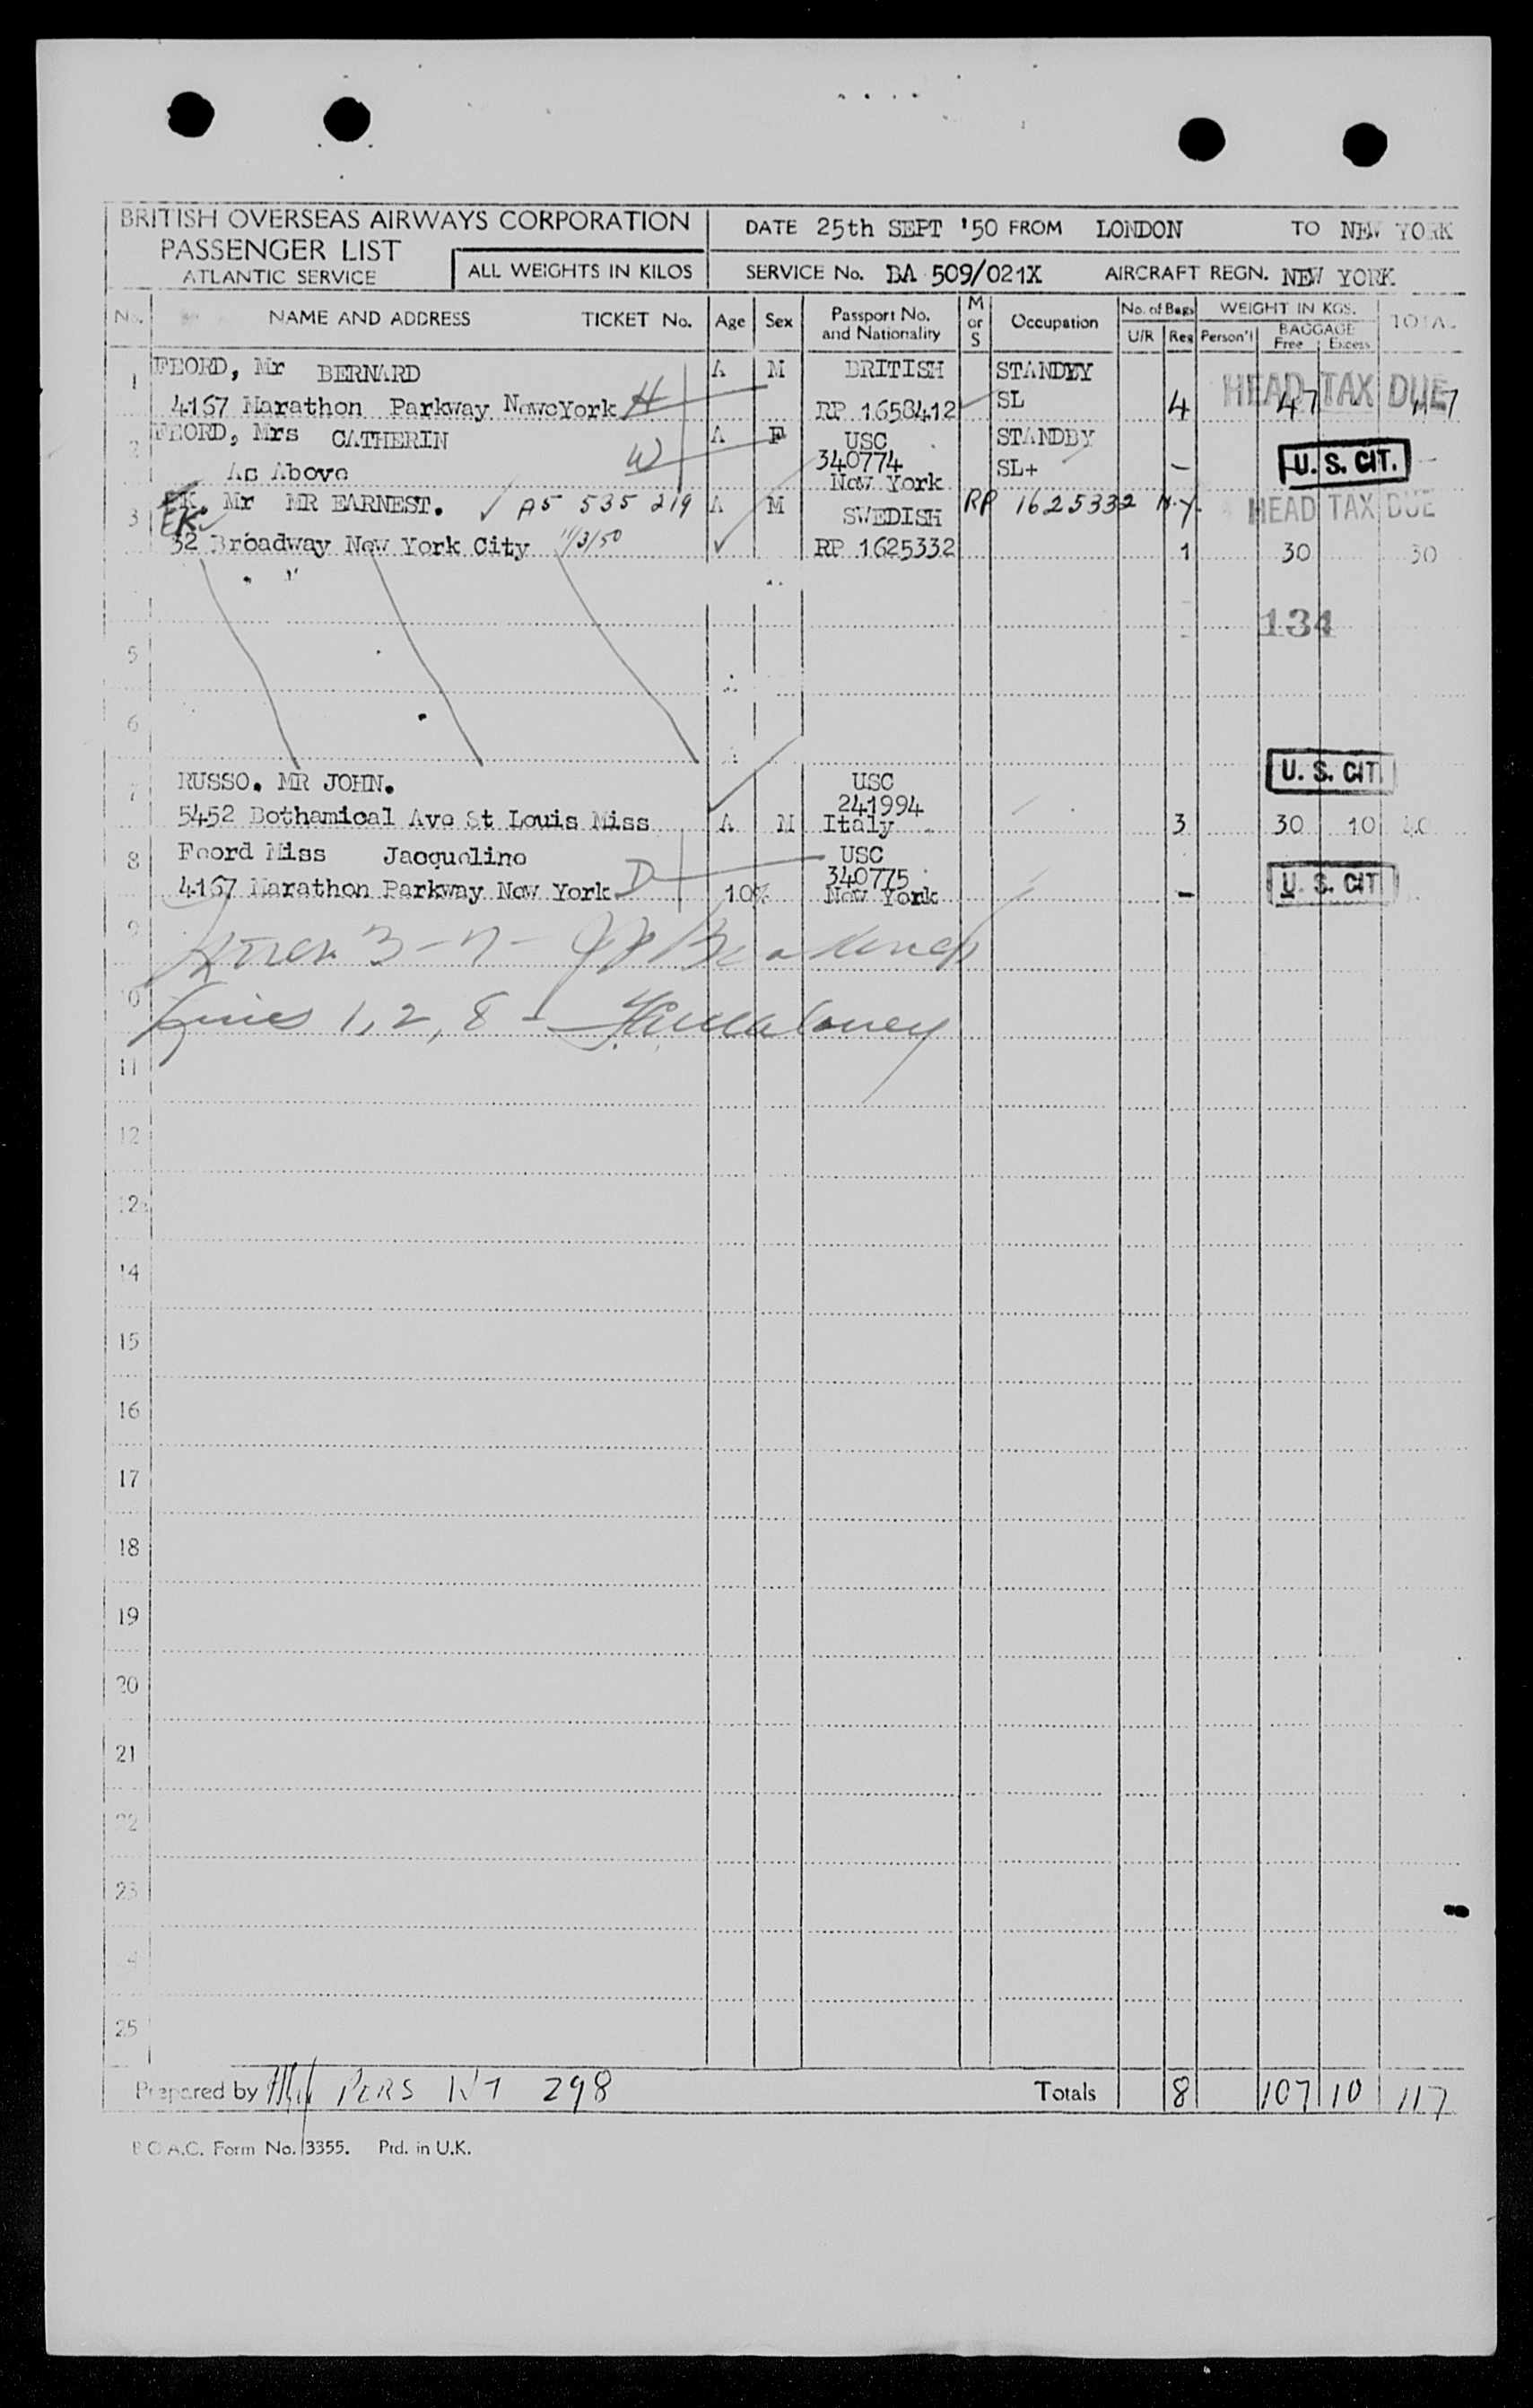 BRITISH OVERSEAS AIRWAYS CORPORATION
PASSENGER LIST
ATLANTIC SERVICE
ALL WEIGHTS IN KILOS
DATE 25th SEPT '50 FROM LONDON TO NEW YORK
SERVICE No. BA 509/021X AIRCRAFT REGN. NEW YORK
No. NAME AND ADDRESS TICKET No. Age Sex Passport No. and Nationality M or S Occupation No. of Bags U/R Reg WEIGHT IN KGS. Person'l BAGGAGE Free Excess TOTAL
1 FEORD, Mr BERNARD A M BRITISH STANDBY HEAD TAX DUE
4167 Marathon Parkway NewcYork H RP 1658412 SL 4 47 47
2 FEORD, Mrs CATHERIN A F USC STANDBY
As Above W 340774 SL+ – U. S. CIT. –
New York
3 EK. Mr MR EARNEST. A5 535 219 A M SWEDISH RP 1625332 N.Y. HEAD TAX DUE
EK
32 Broadway New York City 11/3/50 RP 1625332 1 30 30
134
5
6
7 RUSSO. MR JOHN. USC U. S. CIT.
241994
5452 Bothamical Ave St Louis Miss A M Italy 3 30 10 40
8 Foord Miss Jacqueline USC
4167 Marathon Parkway New York D 10½ 340775 – U. S. CIT
New York
9 3-7-
10 Lines 1, 2, 8 -
11
12
14
15
16
17
18
19
20
21
22
23
25
Prepared by PERS WT 298 Totals 8 107 10 117
B.O.A.C. Form No. 3355. Ptd. in U.K.